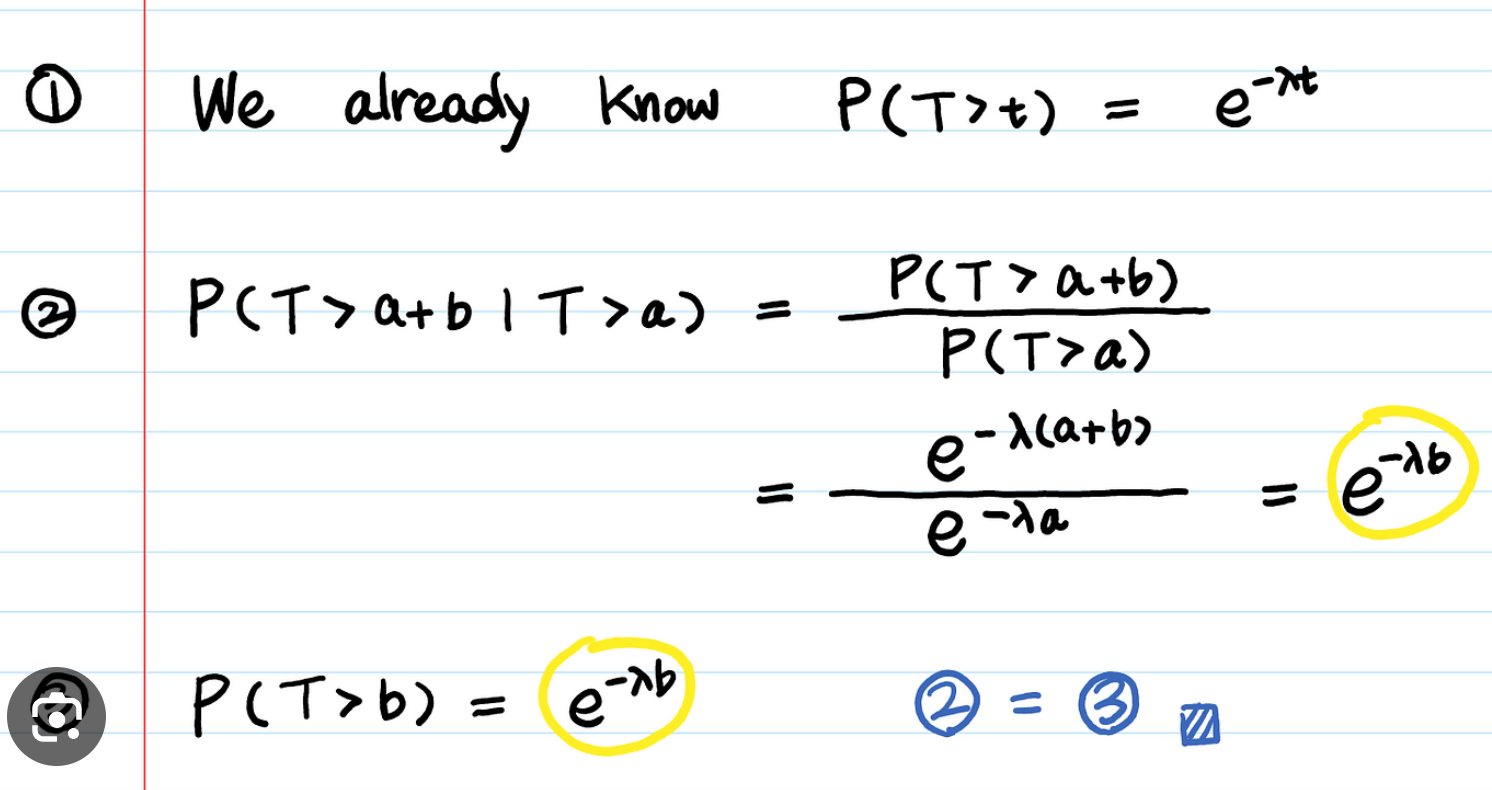 ① We already know P(T>t) = e^{-λt}
② P(T>a+b|T>a) = \frac{P(T>a+b)}{P(T>a)}
= \frac{e^{-λ(a+b)}}{e^{-λa}} = e^{-λb}
P(T>b) = e^{-λb} ② = ③